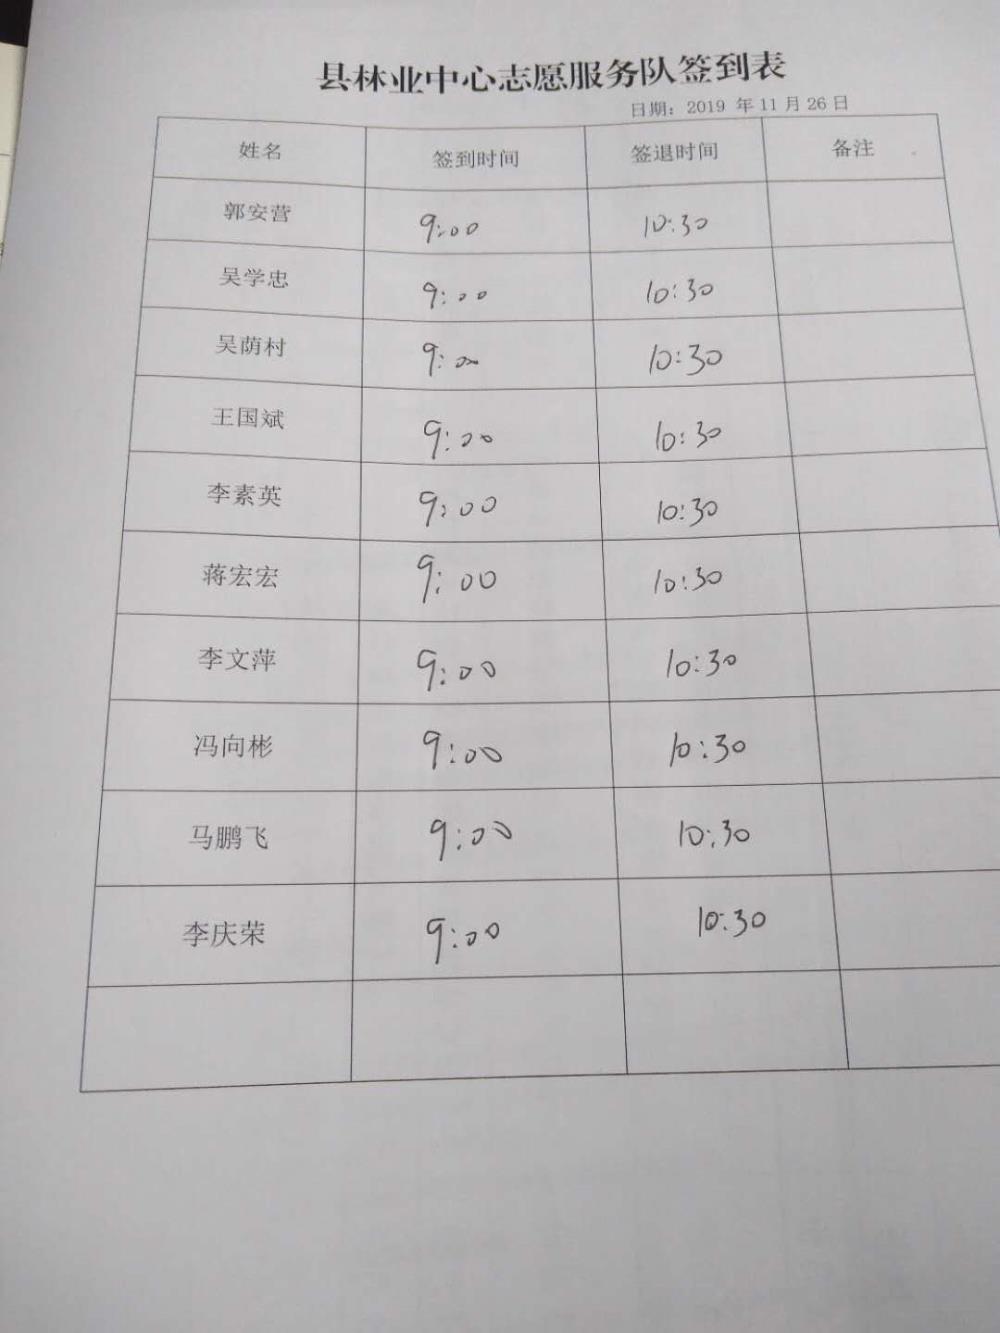 县林业中心志愿服务队签到表
日期：2019 年 11 月 26 日
姓名 签到时间 签退时间 备注
郭安营 9:00 10:30
吴学忠 9:00 10:30
吴荫村 9:00 10:30
王国斌 9:00 10:30
李素英 9:00 10:30
蒋宏宏 9:00 10:30
李文萍 9:00 10:30
冯向彬 9:00 10:30
马鹏飞 9:00 10:30
李庆荣 9:00 10:30